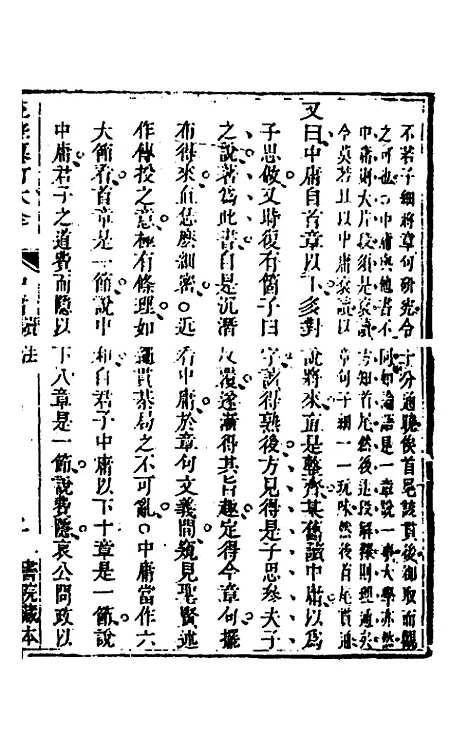 不若子細將章句研究令十分通曉俟首尾該貫後却取而觀
之可也○中庸與他書不同如論語是一章說一事大學亦然
中庸則大片段須是衮讀方知首尾然後逐段解釋則理通矣
今莫若且以中庸衮讀以章句子細一一玩味然後首尾貫通
又曰中庸自首章以下多對說將來直是整齊某舊讀中庸以爲
子思做又時復有箇子曰字讀得熟後方見得是子思參夫子
之說著爲此書自是沉潛反覆遂漸得其旨趣定得今章句擺
布得來直恁麽細密○近看中庸於章句文義間窺見聖賢述
作傳授之意極有條理如繩貫棊局之不可亂○中庸當作六
大節看首章是一節說中和自君子中庸以下十章是一節說
中庸君子之道費而隱以下八章是一節說費隱哀公問政以
讀法
書院藏本